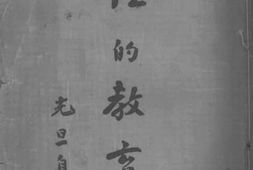 的教育
光旦自